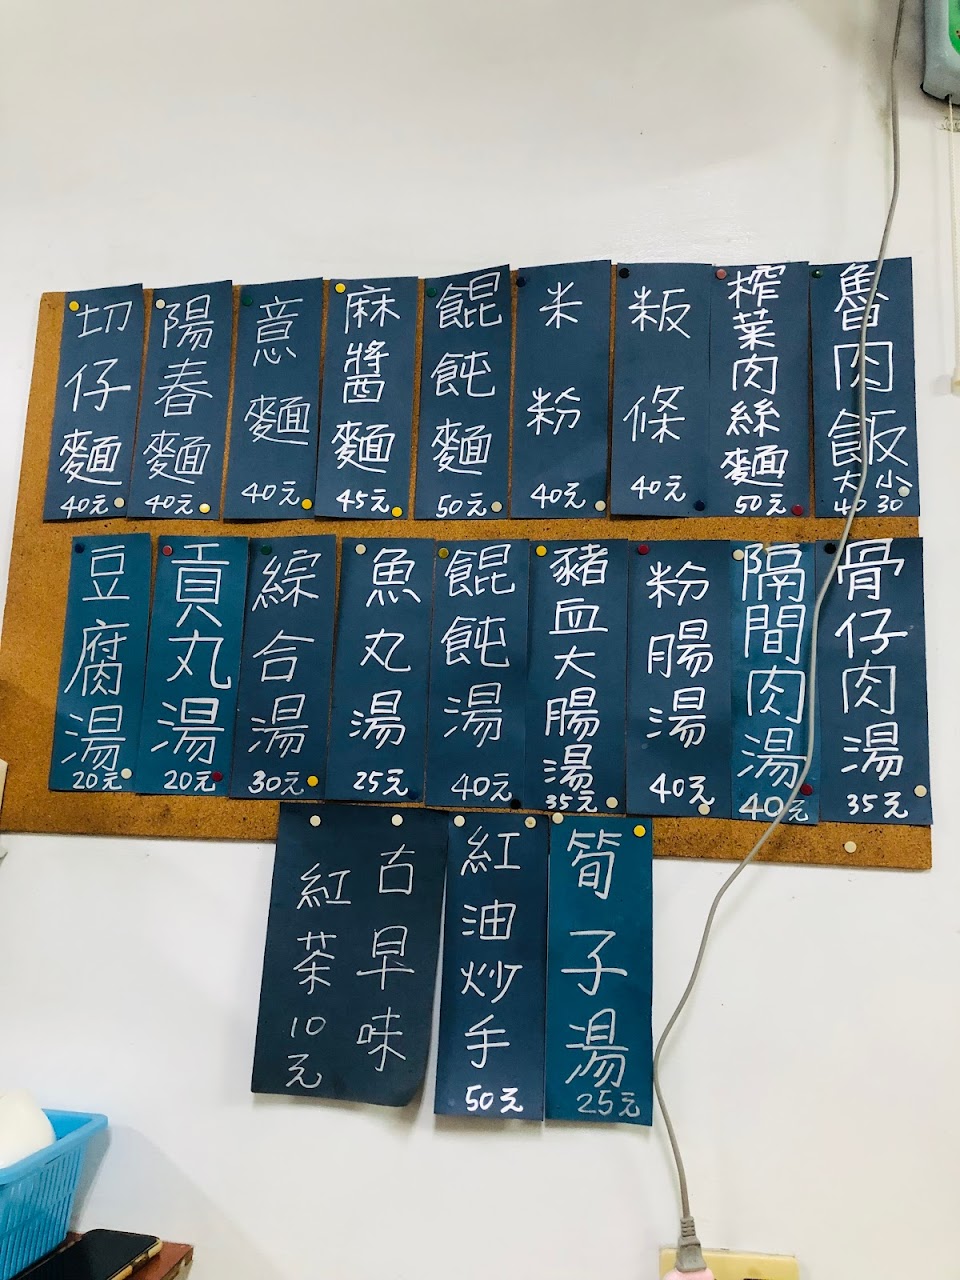 魯肉飯
大 小
40 30
榨菜肉絲麵
50元
粄條
40元
米粉
40元
餛飩麵
50元
麻醬麵
45元
意麵
40元
陽春麵
40元
切仔麵
40元
骨仔肉湯
35元
隔間肉湯
40元
粉腸湯
40元
豬血大腸湯
35元
餛飩湯
40元
魚丸湯
25元
綜合湯
30元
貢丸湯
20元
豆腐湯
20元
筍子湯
25元
紅油炒手
50元
古早味
紅茶10元